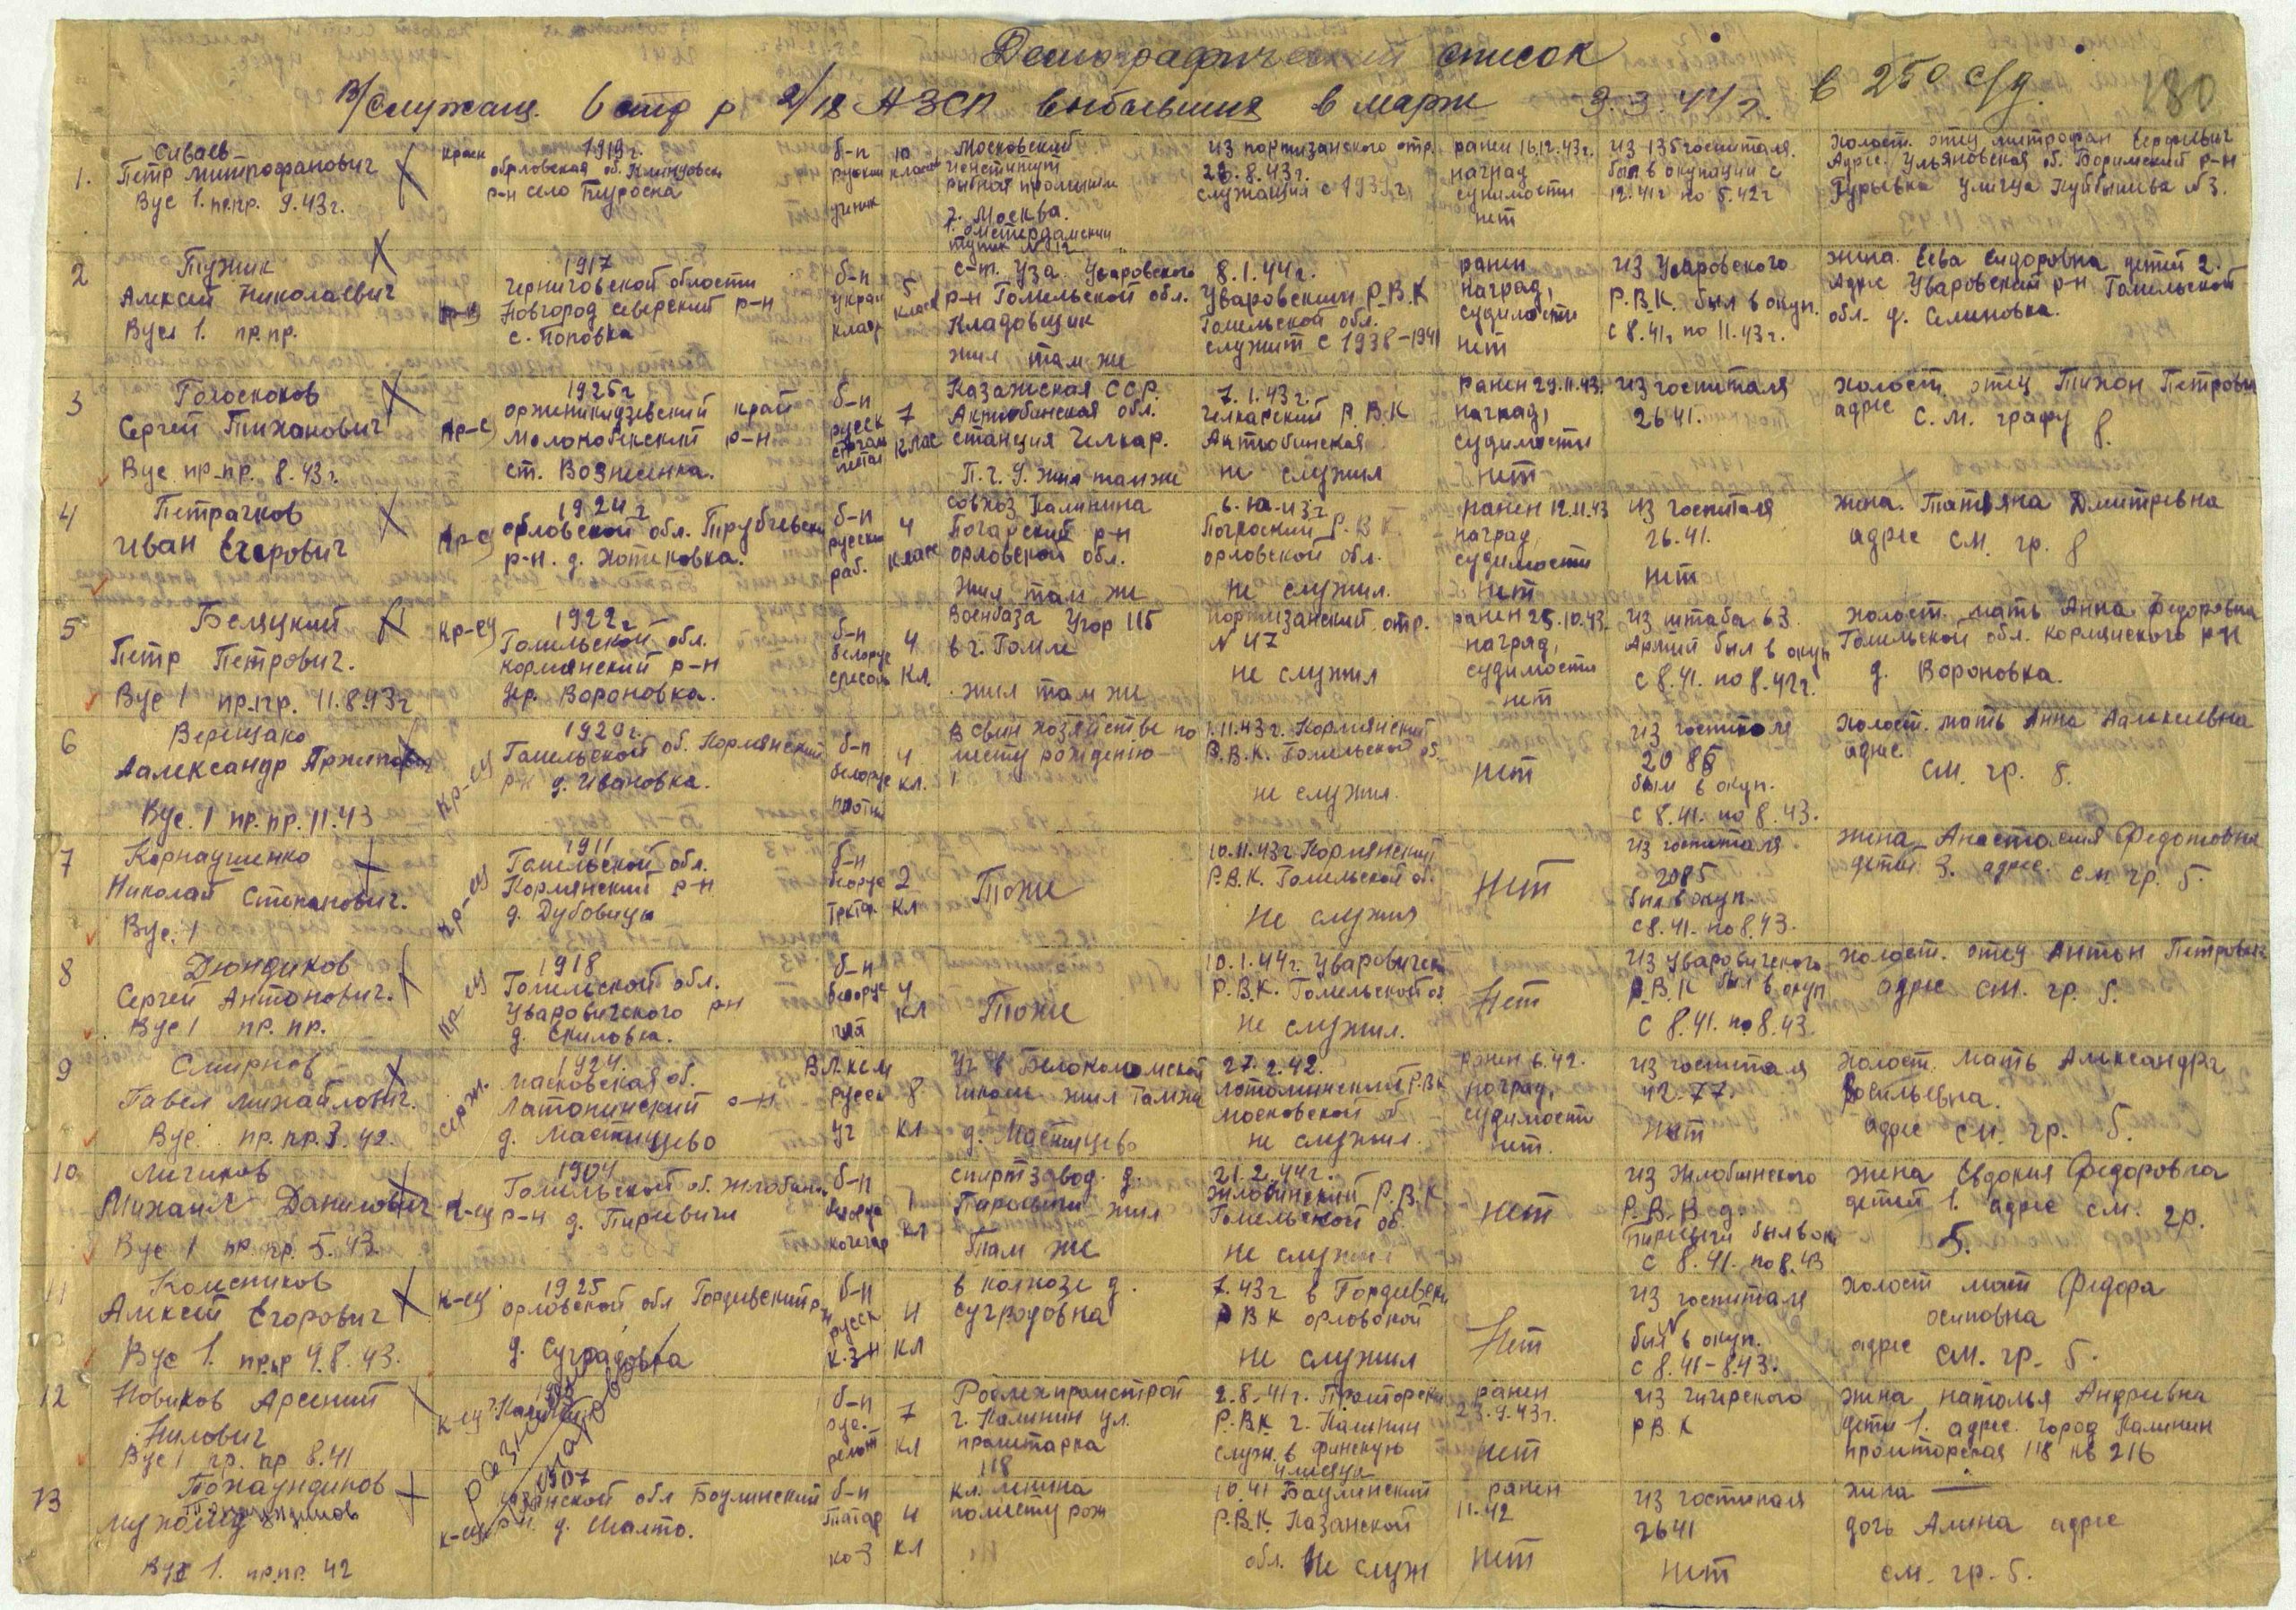 Демографический список
в/служащ. 6 стр р 2/18 АЗСП выбывших в марте 9.3.44 г. в 250 с/д. 180
1. Сиваев
Петр Митрофанович
Вус 1. пр.пр. 9.43 г.
кр-ец
1919 г.
орловская об. Клинцовск
р-н село Туросна
б-п
русский
ученик
10
класс
Московский
институт
рыбная промышлен
г. Москва.
1. Амстердамский
тупик N 12
из партизанского отр.
26.8.43 г.
служащий с 1939 г
ранен 16.12.43 г.
наград
судимости
нет
из 135 госпиталя.
был в окупации с
12.41 г по 5.42 г
холост. отец митрофан
Адрес. Ульяновская об. р-н
Гурьевка улица Куйбышева № 3.
2 Пужик
Алексей Николаевич
Вус 1. пр.пр.
кр-ец
1917
Черниговской области
Новгород северский р-н
с. Поповка
б-п
украи
клад
5
класс
с-т. Уза. Уваровского
р-н Гомельской обл.
Кладовщик
жил там же
8.1.44 г.
Уваровский Р.В.К
Гомельской обл.
служит с 1938-1941
ранен
наград,
судимости
нет
из Уваровского
Р.В.К. был в окуп.
с 8.41 г по 11.43 г.
жена. Ева Сидоровна детей 2.
Адрес Уваровский р-н Гомельской
обл. д. Селиновка.
3 Голоскоков
Сергей Тиханович
Вус пр-пр. 8.43 г.
кр-ец
1925 г
орженикидзевский край
р-н
ст. Вознесенка.
б-п
русск
7
клас
Казахская ССР.
Актюбинская обл.
станция Челкар.
П.Ч.9. жил там же
7.1.43 г.
Челкарский Р.В.К
Актюбинская
не служил
ранен 29.11.43.
наград,
судимости
нет
из госпиталя
2641.
холост. отец Тихон Петрович
адрес с.м. графу 8.
4 Петрачков
Иван Егорович
кр-ец
1924 г
орловской обл. Трубчевск
р-н. д. Хотиковка.
б-п
русский
раб.
4
класс
совхоз Калинина
Погарский р-н
орловской обл.
жил там же
6.10.43 г.
Погарский Р.В.К.
орловской обл.
не служил.
ранен 12.11.43
наград,
судимости
нет
из госпиталя
26.41.
нет
жена. Татьяна Дмитревна
адрес см. гр. 8
5 Беляцкий
Петр Петрович.
Вус 1 пр.пр. 11.8.43 г
кр-ец
1922 г
Гомельской обл.
кормянский р-н
дер. Вороновка.
б-п
белорус
слесарь
4
кл.
Военбаза Угор 115
в г. Гомле
жил там же
партизанский отр.
N 47
не служил
ранен 25.10.43.
наград,
судимости
нет
из штаба 63.
Армий был в окуп
с 8.41. по 8.42 г.
холост. мать Анна Федоровна
Гомельской обл. кормянского р-н
д. Вороновка.
6 Верещако
Аалександр Архипович
Вус. 1 пр.пр. 11.43
кр-ец
1920 г.
Гомельской об. Кормянский
р-н д. Ивановка.
б-п
белорус
плотн
4
кл.
В свин хозяйстве по
месту рождению
1.11.43 г. Кормянский
Р.В.К. Гомельской об.
не служил.
нет
из госпиталя
2085
был в окуп.
с 8.41. по 8.43.
холост. мать Анна Аалексеевна
адрес.
см. гр. 5.
7 Корнаушенко
Николай Степанович.
Вус. 1
кр-ец
1911
Гомельской обл.
Кормянский р-н
д. Дубовица
б-п
белорус
трктор
2
кл
Тоже
10.11.43 г Кормянский
Р.В.К. Гомельской об.
не служил
нет
из госпиталя
2085
был в окуп.
с 8.41. по 8.43.
жена Анастасия Федотовна
детей 3. адрес. см гр. 5.
8 Дюндиков
Сергей Антонович.
Вус 1 пр. пр.
кр-ец
1918
Гомельской обл.
Уваровичского р-н
д. Смиловка.
б-п
белорус
4
кл
Тоже
10.1.44 г. Уваровическ
Р.В.К. Гомельской об
не служил.
нет
из Уваровичского
Р.В.К был в окуп
с 8.41. по 8.43.
холост. отец Антон Петрович
адрес см. гр. 5.
9 Смирнов
Павел Михайлович.
Вус. пр.пр. 3.42.
серж.
1924.
Масковская об.
Латошинский р-н
д. Мастищево
ВЛКСМ
русск
уч
8
кл
Уч в школе жил там же
д. Мастищево
27.2.42.
Латошинский Р.В.К
московской об
не служил.
ранен 6.42.
наград,
судимости
нет.
из госпиталя
42.77.
нет
холост. мать Александра
Васильевна.
адрес см. гр. 5.
10 Личиков
Михаил Данилович
Вус 1 пр. пр. 5.43.
к-ец
1904
Гомельской об. Жлобин
р-н д. Пиревичи
б-п
белорус
кочегар
1
кл
спиртзавод. д.
Пиревичи жил
там же
21.2.44 г.
Жлобинский Р.В.К
Гомельской об.
не служил
нет
из Жлобинского
Р.В.В д.
Пиревичи был в ок
с 8.41. по 8.43
жена Евдокия Федоровна
детей 1. адрес см. гр.
5.
11 Колесников
Алексей Егорович
Вус 1. пр.пр 9.8.43.
к-ец
1925
орловской обл Гордеевский р-н
д. Суградовка
б-п
русск
к.з-н
4
кл
в колхозе д.
суградовка
7.43 г в Гордеевск
РВК орловской
не служил
нет
из госпиталя
был в окуп.
с 8.41-8.43.
холост мать Федора
осиповна
адрес см. гр. 5.
12 Новиков Арсений
Нилович
Вус 1 пр. пр 8.41
к-ец
г. Калинин
б-п
рус.
7
кл
г. Калинин ул.
пролетарка
118
2.8.41 г. Пролторски
Р.В.К. г. Калинин
служ. в финскую
4 месяца
ранен
23.9.43 г.
нет
из
РВК
жена наталья Андреевна
дети 1. адрес. город Калинин
118 кв 216
13
Вус 1. пр.пр. 42
к-ец
1907
Казанской обл Баулинский
р-н. д. Шалто.
б-п
татар
ко-з
4
кл
кл. ленина
по месту рож
10.41 Баулинский
Р.В.К. Казанской
обл. Не служ
ранен
11.42
нет
из госпиталя
2641
нет
жена —
дочь Алина адрес
см. гр. 5.